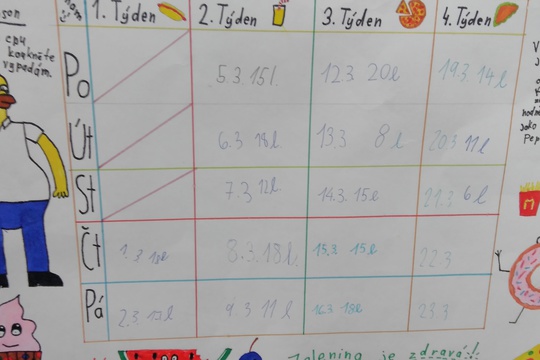 son
CPU
konkněte
vypadám.
1. Týden
2. Týden
3. Týden
4. Týden
Po
5.3. 15l
12.3 20l
19.3 14l
Út
6.3 18l
13.3 8l
20.3 11l
St
7.3 12l
14.3. 15l
21.3 6l
Čt
1.3 18l
8.3. 18l
15.3. 15l
22.3
Pá
2.3
9.3 11l
16.3 18l
23.3
jako
Pep
Zelenina je zdravá!!